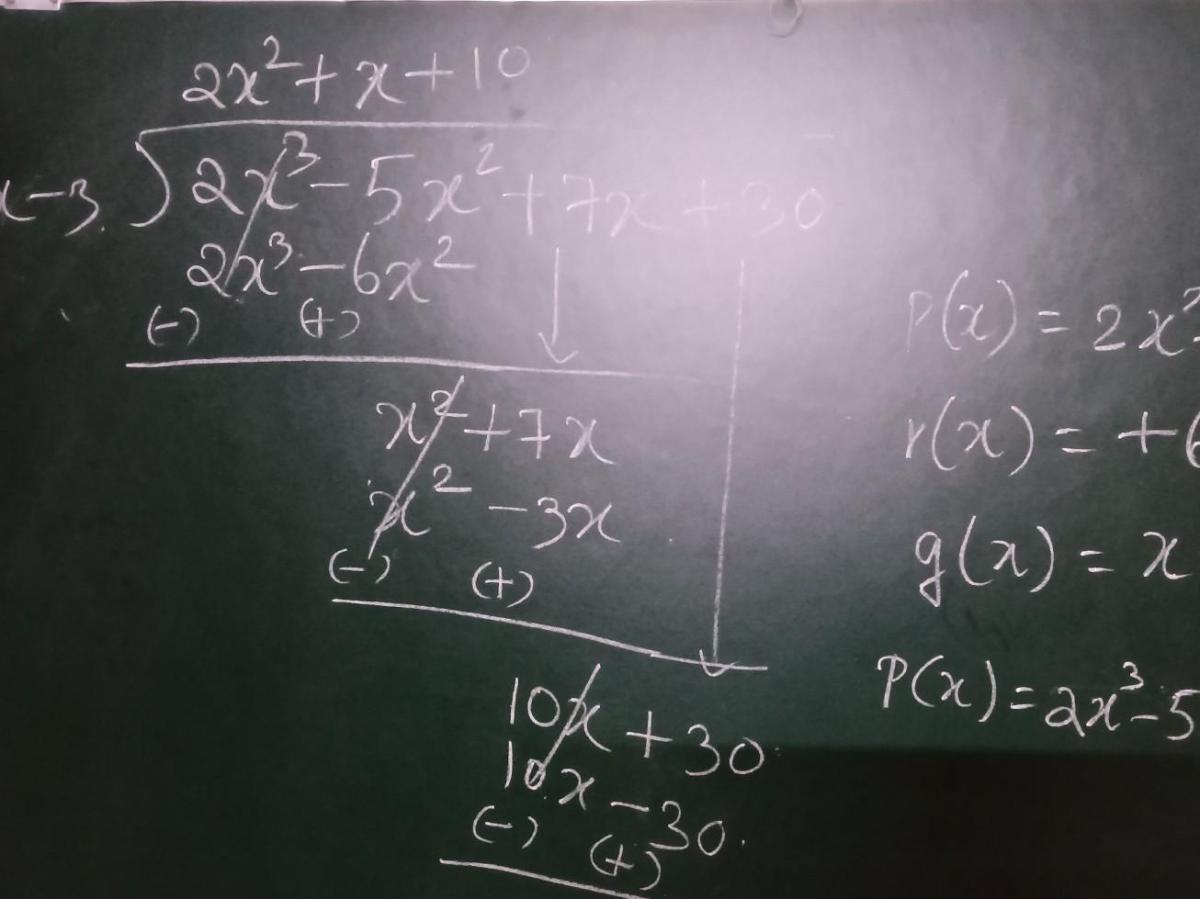 2x² + x + 10
x-3 ) 2x³ - 5x² + 7x + 30
2x³ - 6x²
(-) (+)
x² + 7x
x² - 3x
(-) (+)
10x + 30
10x - 30
(-) (+)
p(x) = 2x
r(x) = +6
g(x) = x
P(x) = 2x³ - 5